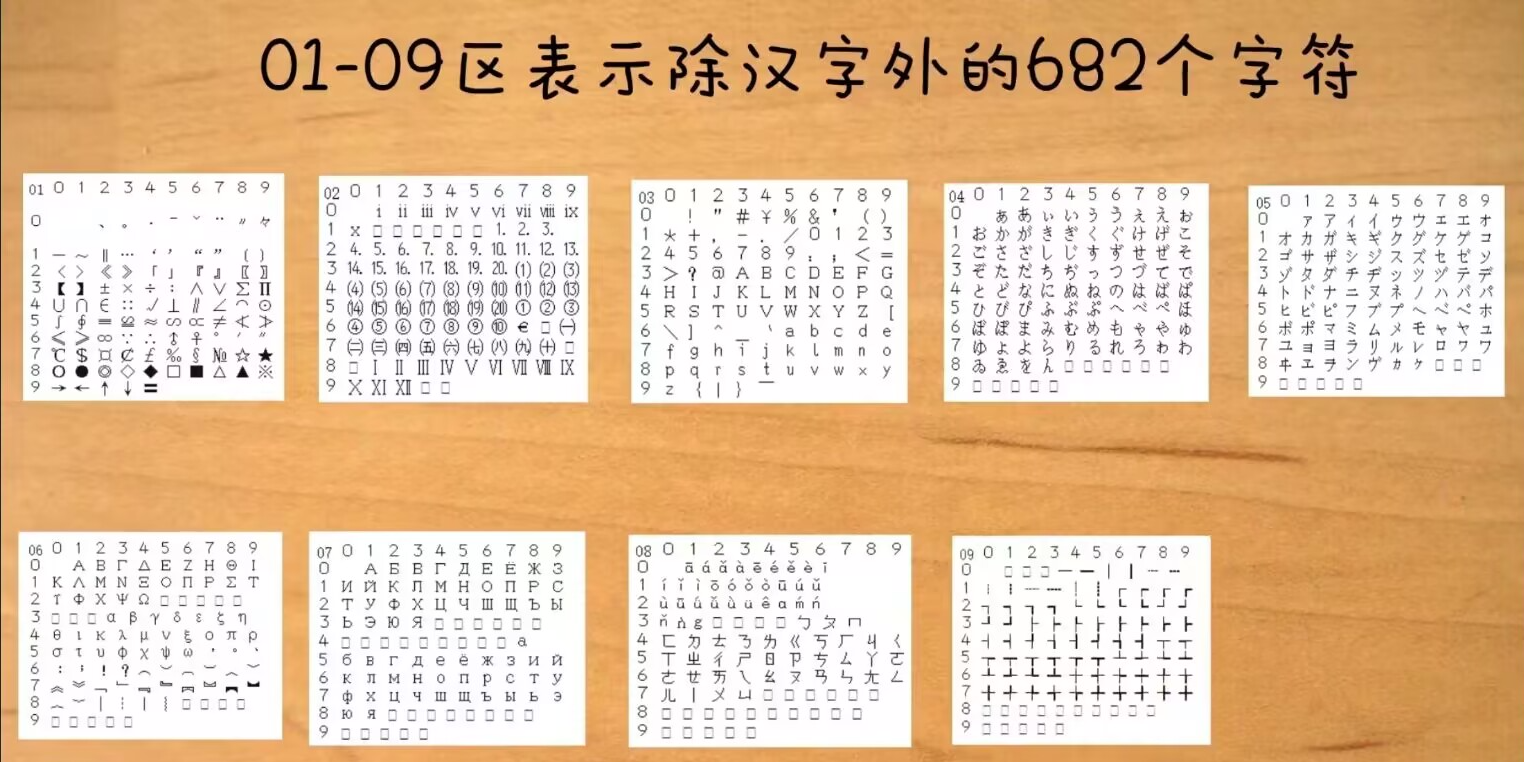 01-09区表示除汉字外的682个字符
01 0 1 2 3 4 5 6 7 8 9
0 、 。 · ˉ ˇ ¨ 〃 々
1 — ～ ‖ … ‘ ’ “ ” 〔 〕
2 〈 〉 《 》 「 」 『 』 〖 〗
3 【 】 ± × ÷ ∶ ∧ ∨ ∑ ∏
4 ∪ ∩ ∈ ∷ √ ⊥ ∥ ∠ ⌒ ⊙
5 ∫ ∮ ≡ ≌ ≈ ∽ ∝ ≠ ≮ ≯
6 ≤ ≥ ∞ ∵ ∴ ♂ ♀ ° ′ ″
7 ℃ $ ¤ ￠ ￡ ‰ § № ☆ ★
8 ○ ● ◎ ◇ ◆ □ ■ △ ▲ ※
9 → ← ↑ ↓ 〓
02 0 1 2 3 4 5 6 7 8 9
0 ⅰ ⅱ ⅲ ⅳ ⅴ ⅵ ⅶ ⅷ ⅸ
1 ⅹ □ □ □ □ □ □ 1. 2. 3.
2 4. 5. 6. 7. 8. 9. 10. 11. 12. 13.
3 14. 15. 16. 17. 18. 19. 20. ⑴ ⑵ ⑶
4 ⑷ ⑸ ⑹ ⑺ ⑻ ⑼ ⑽ ⑾ ⑿ ⒀
5 ⒁ ⒂ ⒃ ⒄ ⒅ ⒆ ⒇ ① ② ③
6 ④ ⑤ ⑥ ⑦ ⑧ ⑨ ⑩ € □ ㈠
7 ㈡ ㈢ ㈣ ㈤ ㈥ ㈦ ㈧ ㈨ ㈩ □
8 □ Ⅰ Ⅱ Ⅲ Ⅳ Ⅴ Ⅵ Ⅶ Ⅷ Ⅸ
9 Ⅹ Ⅺ Ⅻ □ □
03 0 1 2 3 4 5 6 7 8 9
0 ! " # ¥ % & ' ( )
1 * + , - . / 0 1 2 3
2 4 5 6 7 8 9 : ; < =
3 > ? @ A B C D E F G
4 H I J K L M N O P Q
5 R S T U V W X Y Z [
6 \ ] ^ _ ` a b c d e
7 f g h i j k l m n o
8 p q r s t u v w x y
9 z { | } ‾
04 0 1 2 3 4 5 6 7 8 9
0 ぁ あ ぃ い ぅ う ぇ え ぉ
1 お か が き ぎ く ぐ け げ こ
2 ご さ ざ し じ す ず せ ぜ そ
3 ぞ た だ ち ぢ っ つ づ て で
4 と ど な に ぬ ね の は ば ぱ
5 ひ び ぴ ふ ぶ ぷ へ べ ぺ ほ
6 ぼ ぽ ま み む め も ゃ や ゅ
7 ゆ ょ よ ら り る れ ろ ゎ わ
8 ゐ ゑ を ん □ □ □ □ □ □
9 □ □ □ □ □
05 0 1 2 3 4 5 6 7 8 9
0 ァ ア ィ イ ゥ ウ ェ エ ォ
1 オ カ ガ キ ギ ク グ ケ ゲ コ
2 ゴ サ ザ シ ジ ス ズ セ ゼ ソ
3 ゾ タ ダ チ ヂ ッ ツ ヅ テ デ
4 ト ド ナ ニ ヌ ネ ノ ハ バ パ
5 ヒ ビ ピ フ ブ プ ヘ ベ ペ ホ
6 ボ ポ マ ミ ム メ モ ャ ヤ ュ
7 ユ ョ ヨ ラ リ ル レ ロ ヮ ワ
8 ヰ ヱ ヲ ン ヴ ヵ ヶ □ □ □
9 □ □ □ □ □
06 0 1 2 3 4 5 6 7 8 9
0 Α Β Γ Δ Ε Ζ Η Θ Ι
1 Κ Λ Μ Ν Ξ Ο Π Ρ Σ Τ
2 Υ Φ Χ Ψ Ω □ □ □ □ □
3 □ □ □ α β γ δ ε ζ η
4 θ ι κ λ μ ν ξ ο π ρ
5 σ τ υ φ χ ψ ω
6
7
8 □ □ □ □
9 □ □ □ □ □
07 0 1 2 3 4 5 6 7 8 9
0 А Б В Г Д Е Ё Ж З
1 И Й К Л М Н О П Р С
2 Т У Ф Х Ц Ч Ш Щ Ъ Ы
3 Ь Э Ю Я □ □ □ □ □ □
4 □ □ □ □ □ □ □ □ □ а
5 б в г д е ё ж з и й
6 к л м н о п р с т у
7 ф х ц ч ш щ ъ ы ь э
8 ю я □ □ □ □ □ □ □ □
9 □ □ □ □ □
08 0 1 2 3 4 5 6 7 8 9
0 ā á ǎ à ē é ě è ī
1 í ǐ ì ō ó ǒ ò ū ú ǔ
2 ù ǖ ǘ ǚ ǜ ü ê ɑ ḿ ń
3 ň ǹ ɡ □ □ □ □ ㄅ ㄆ ㄇ
4 ㄈ ㄉ ㄊ ㄋ ㄌ ㄍ ㄎ ㄏ ㄐ ㄑ
5 ㄒ ㄓ ㄔ ㄕ ㄖ ㄗ ㄘ ㄙ ㄚ ㄛ
6 ㄜ ㄝ ㄞ ㄟ ㄠ ㄡ ㄢ ㄣ ㄤ ㄥ
7 ㄦ ㄧ ㄨ ㄩ □ □ □ □ □ □
8 □ □ □ □ □ □ □ □ □
9 □ □ □ □ □
09 0 1 2 3 4 5 6 7 8 9
0 □ □ □ ─ ━ │ ┃ ┄ ┅
1
2
3
4
5
6
7
8 □ □ □ □ □ □ □ □
9 □ □ □ □ □